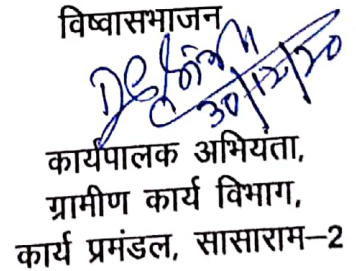 विष्वासभाजन
30/12/20
कार्यपालक अभियंता,
ग्रामीण कार्य विभाग,
कार्य प्रमंडल, सासाराम–2